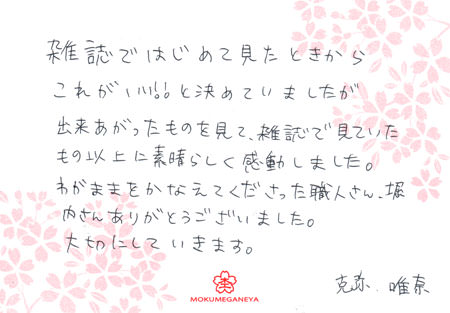 雑誌ではじめて見たときから
これがいい!!と決めていましたが
出来あがったものを見て、雑誌で見ていた
もの以上に素晴らしく感動しました。
わがままをかなえてくださった職人さん、堀
内さんありがとうございました。
大切にしていきます。
MOKUMEGANEYA
克弥 唯奈